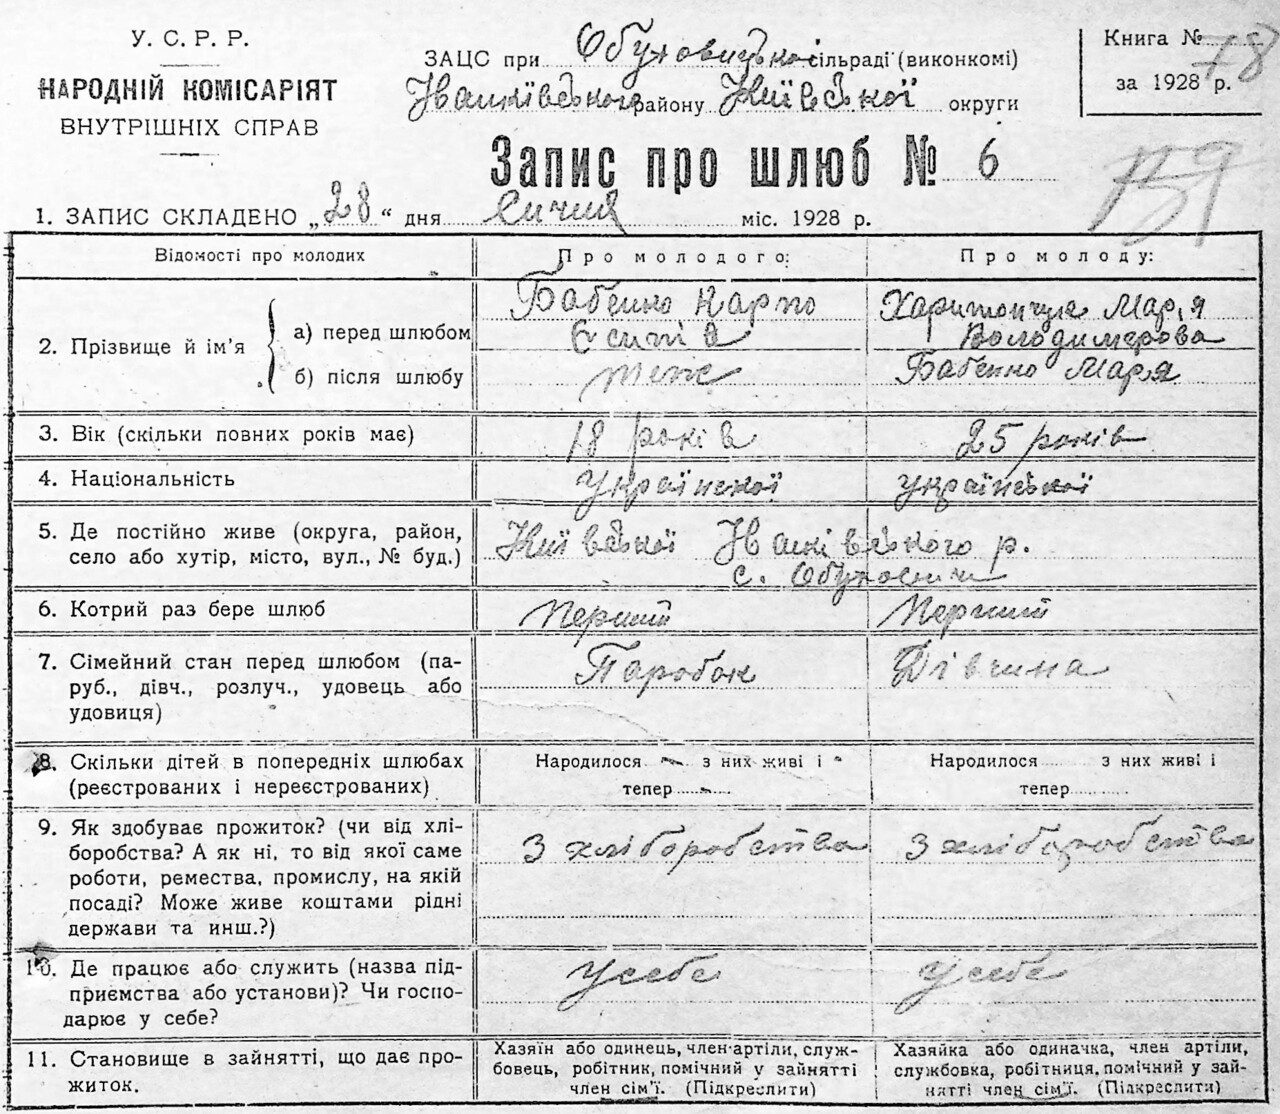 У. С. Р. Р.
НАРОДНІЙ КОМІСАРІЯТ
ВНУТРІШНІХ СПРАВ
ЗАЦС при Обуховицької сільраді (виконкомі)
Іванківського району Київської округи
Книга №
78
за 1928 р.
Запис про шлюб № 6
159
1. ЗАПИС СКЛАДЕНО „28“ дня Січня міс. 1928 р.
Відомості про молодих
Про молодого:
Про молоду:
2. Прізвище й ім'я
а) перед шлюбом
Бабенко Карпо
Єсипів
Харитончук Марія
Володимерова
б) після шлюбу
теж
Бабенко Марія
3. Вік (скільки повних років має)
18 років
25 років
4. Національність
української
української
5. Де постійно живе (округа, район,
село або хутір, місто, вул., № буд.)
Київської Іванківського р.
с. Обуховичи
6. Котрий раз бере шлюб
Перший
Перший
7. Сімейний стан перед шлюбом (па-
руб., дівч., розлуч., удовець або
удовиця)
Паробок
Дівчина
8. Скільки дітей в попередніх шлюбах
(реєстрованих і нереєстрованих)
Народилося – з них живі і
тепер –
Народилося з них живі і
тепер
9. Як здобуває прожиток? (чи від хлі-
боробства? А як ні, то від якої саме
роботи, ремества, промислу, на якій
посаді? Може живе коштами рідні
держави та инш.?)
З хліборобства
З хліборобства
10. Де працює або служить (назва під-
приємства або установи)? Чи госпо-
дарює у себе?
У себе
У себе
11. Становище в зайнятті, що дає про-
житок.
Хазяїн або одинець, член артіли, служ-
бовець, робітник, помічний у зайнятті
член сім'ї. (Підкреслити)
Хазяйка або одиначка, член артіли,
службовка, робітниця, помічний у зай-
нятті член сім'ї. (Підкреслити)